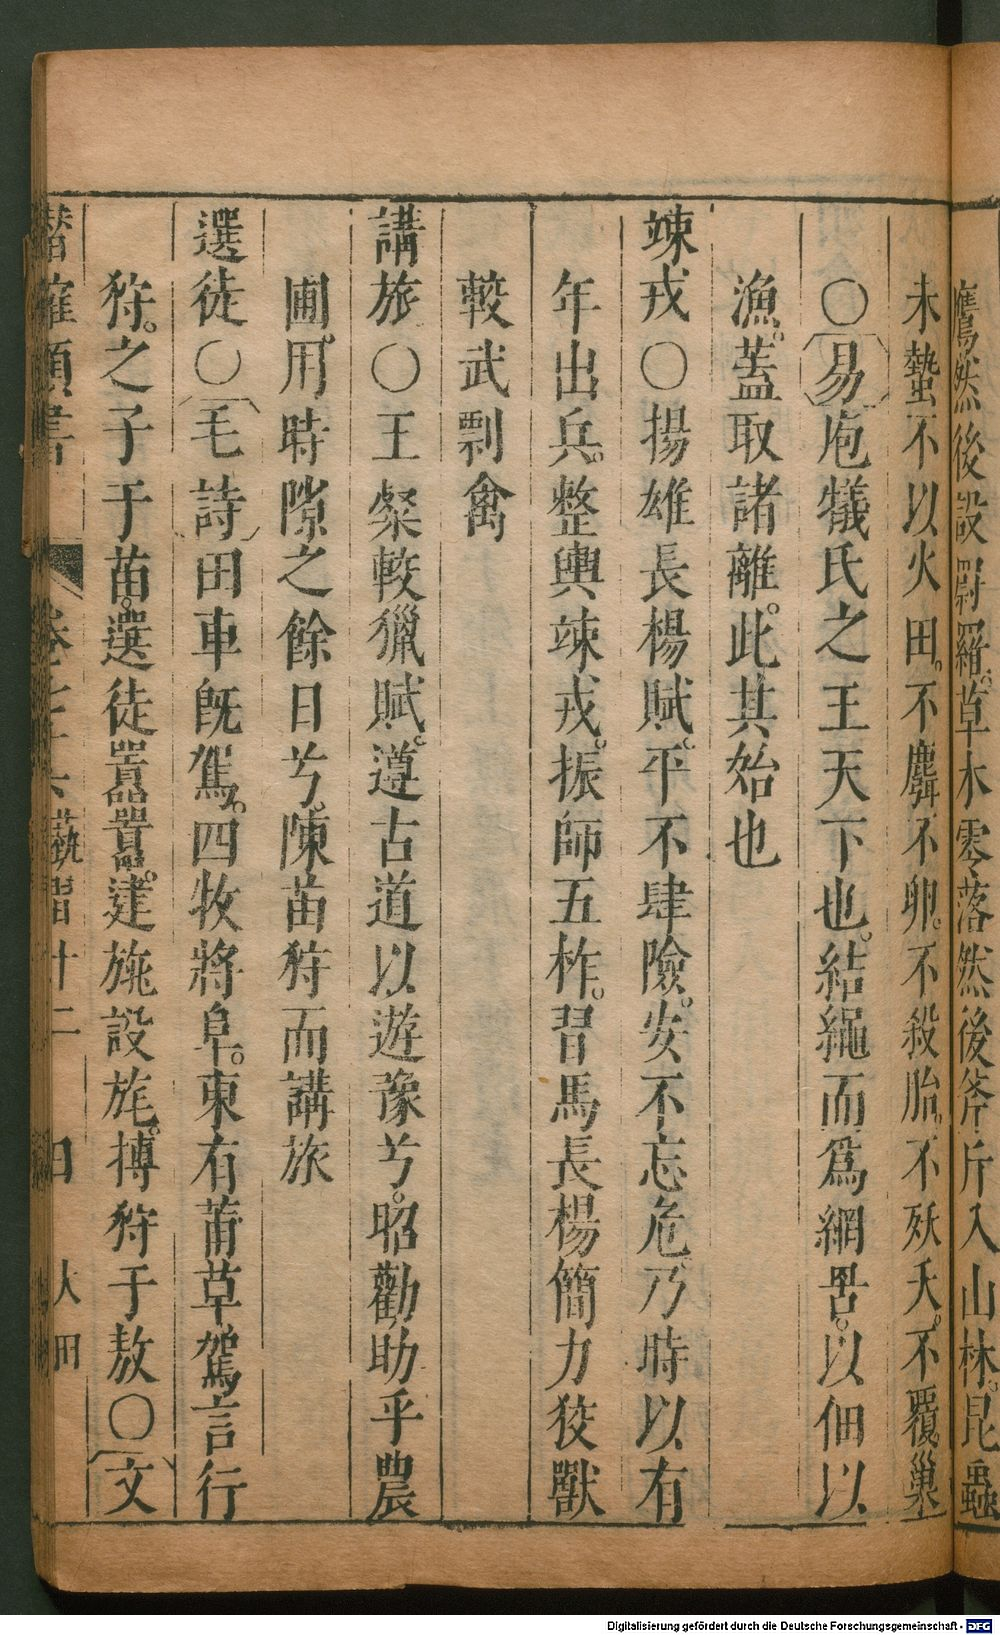 鷹然後設罻羅。草木零落然後斧斤入山林。昆蟲
未蟄不以火田。不麛不卵。不殺胎。不殀夭。不覆巢
〇易庖犧氏之王天下也。結繩而爲網罟。以佃以
漁。蓋取諸離。此其始也
竦戎〇揚雄長楊賦。平不肆險。安不忘危。乃時以有
年出兵。整輿竦戎。振師五柞。習馬長楊簡力狡獸
較武剽禽
講旅〇王粲較獵賦。遵古道以遊豫兮。昭勸助乎農
圃。用時隙之餘日兮。陳苗狩而講旅
選徒〇毛詩田車旣駕。四牧將阜。東有莆草駕言行
狩。之子于苗。選徒囂囂。建旐設旄。搏狩于敖〇文
潛確類書 卷七十八藝習十二 田 大田
Digitalisierung gefördert durch die Deutsche Forschungsgemeinschaft - DFG